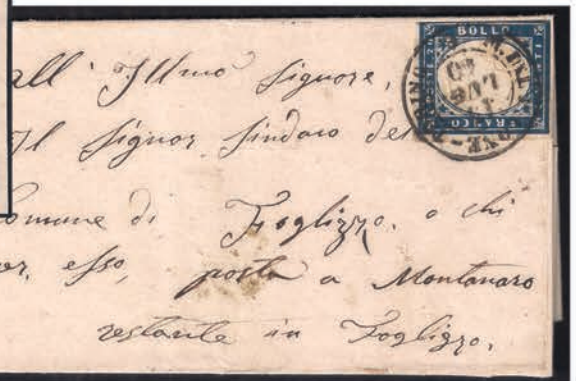 all' Illmo Signore,
Il Signor Sindaco del
Comune di Foglizzo. o chi
per esso, posta a Montanaro
restante in Foglizzo.
BOLLO
FRANCO